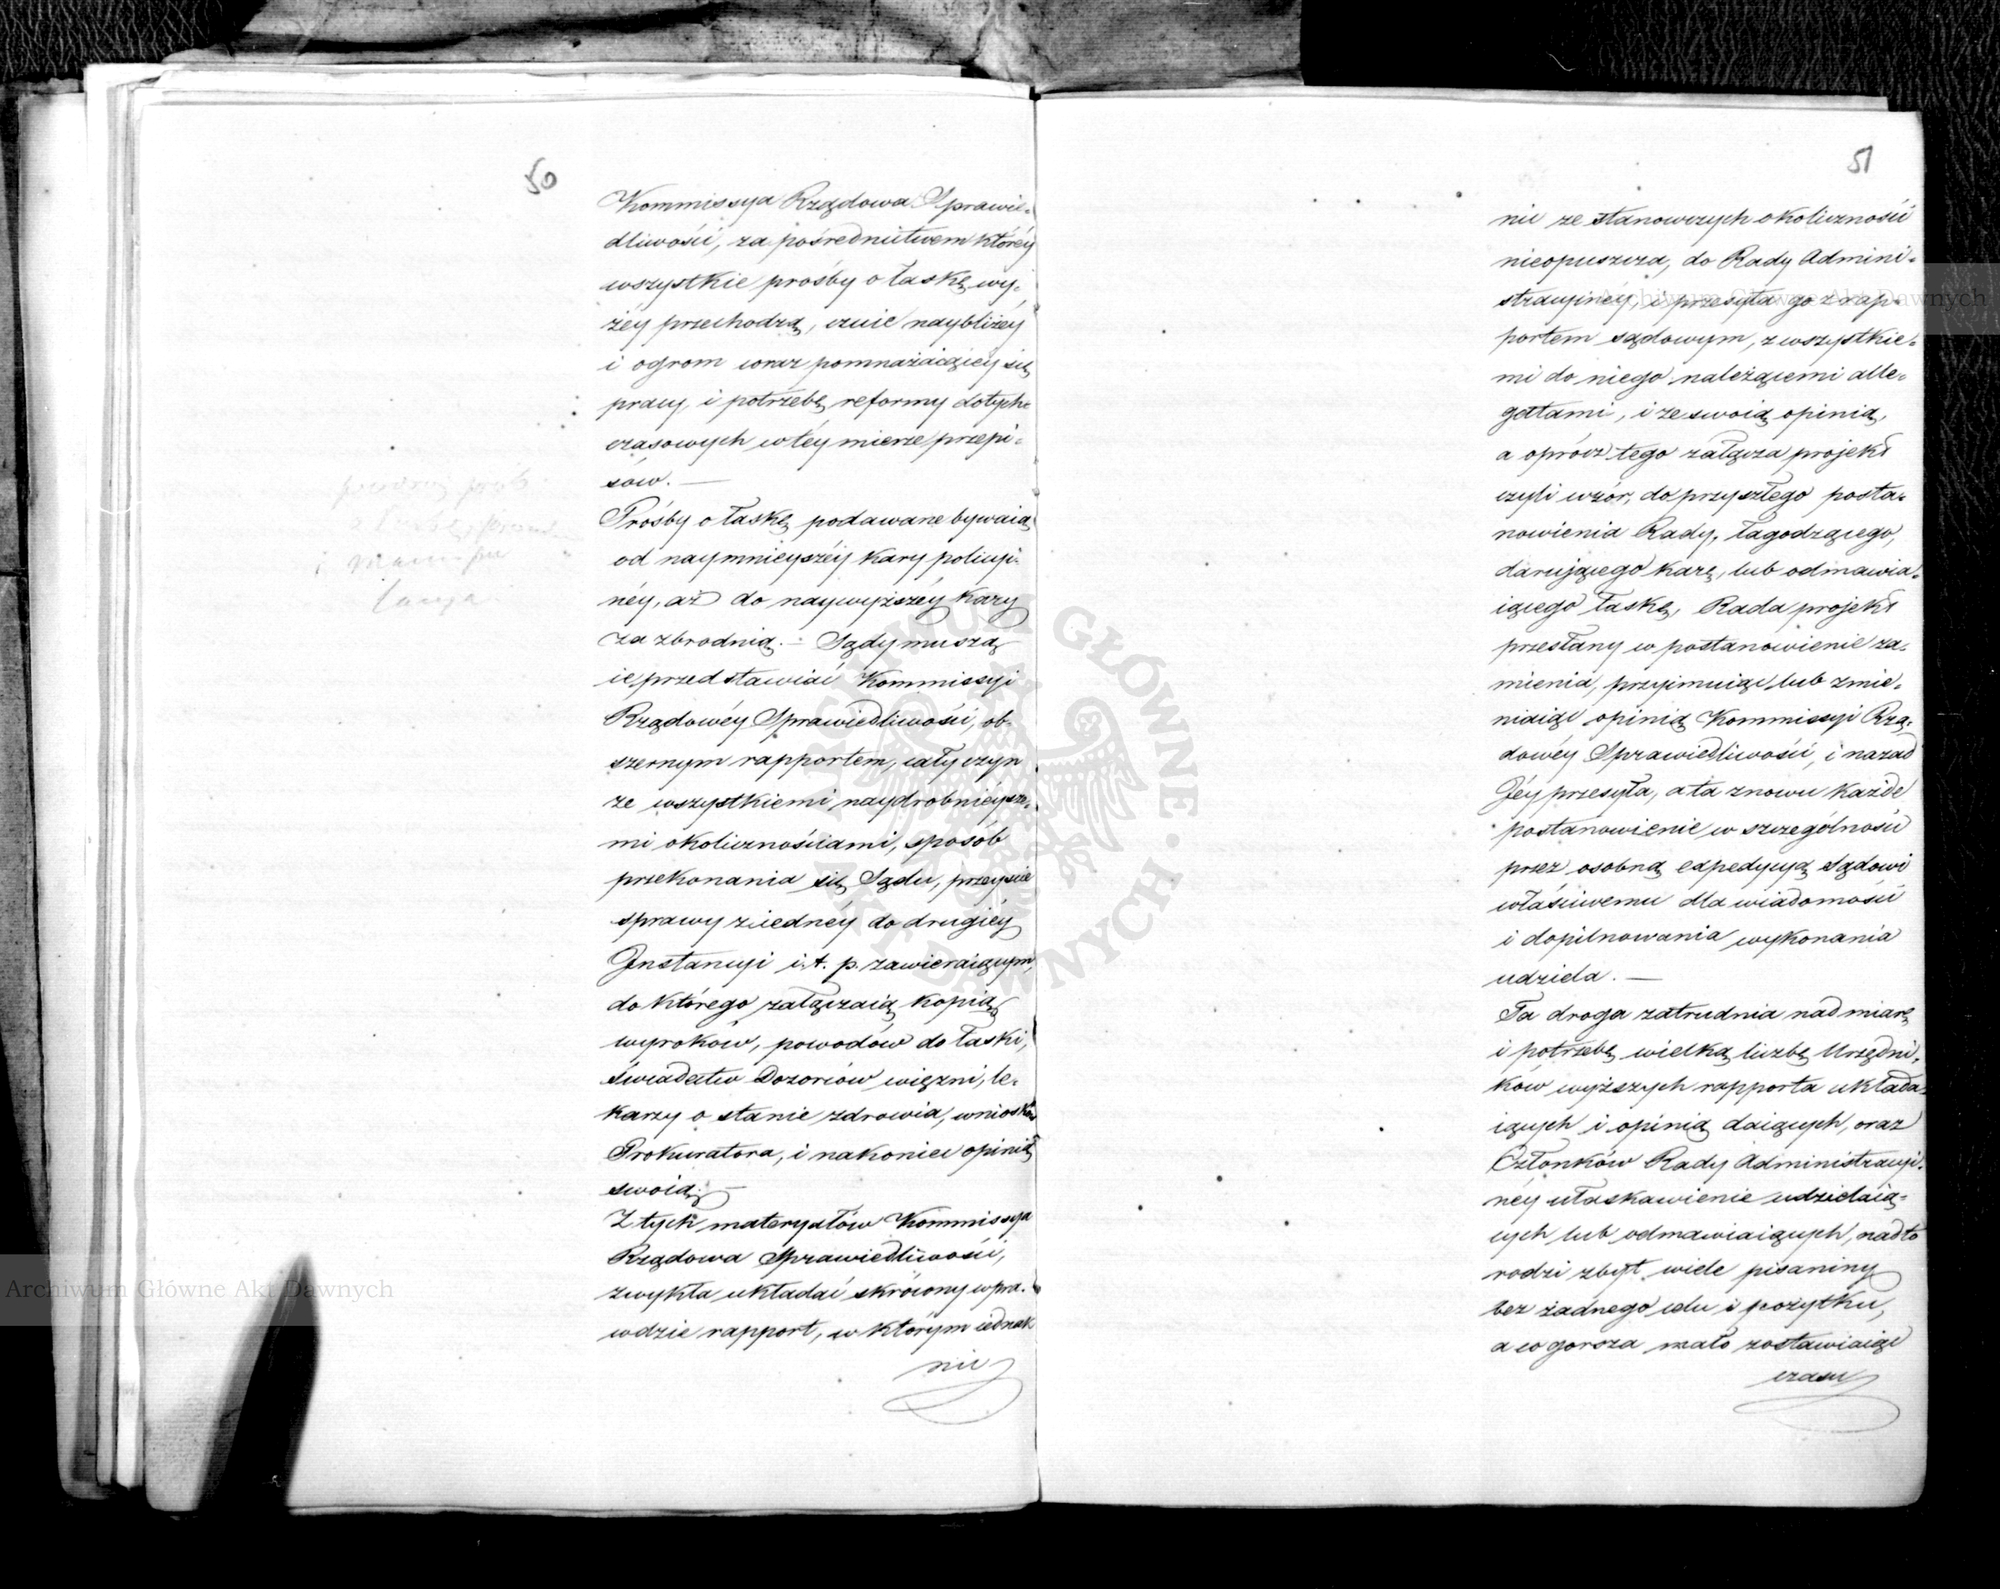 50
Kommissya Rządowa Sprawie-
dliwości, za pośrednictwem któréy
wszystkie prośby o łaskę wy-
żéy przechodzą, czuie naybliżéy
i ogrom coraz pomnażaiącéy się
pracy, i potrzebę reformy dotych-
czasowych w téy mierze przepi-
sów. —
Prośby o łaskę podawane bywaią
od naymnieyszéy kary policyi-
néy, aż do naywyższéy kary
za zbrodnią. — Sądy muszą
ie przedstawiać Kommissyi
Rządowéy Sprawiedliwości, ob-
szernym rapportem, cały czyn
ze wszystkiemi naydrobnieysze-
mi okolicznościami, sposób
przekonania się Sądu, przeyście
sprawy z iednéy do drugiéy
Instancyi i. t. p. zawieraiącym,
do którego załączaią kopią
wyroków, powodów do łaski,
świadectw Dozorców więzni, le-
karzy o stanie zdrowia, wniosków
Prokuratora, i nakoniec opinią
swoią. —
Z tych materyałów Kommissya
Rządowa Sprawiedliwości,
zwykła układać skrócony wpra-
wdzie rapport, w którym iednak
nic
51
nic ze stanowczych okoliczności
nieopuszcza, do Rady Admini-
stracyinéy, i przesyła go z rap-
portem sądowym, z wszystkie-
mi do niego należącemi alle-
gatami, i ze swoią opinią,
a oprócz tego załącza projekt
czyli wzór, do przyszłego posta-
nowienia Rady, łagodzącego,
darującego karę, lub odmawia-
iącego łaskę, Rada projekt
przesłany w postanowienie za-
mienia, przyimuiąc lub zmie-
niaiąc opinią Kommissyi Rzą-
dowéy Sprawiedliwości, i nazad
Jéy przesyła, a ta znowu każde
postanowienie w szczególności
przez osobną expedycyą Sądowi
właściwemu dla wiadomości
i dopilnowania wykonania
udziela. —
Ta droga zatrudnia nad miarę
i potrzebę wielką liczbę Urzędni-
ków wyższych rapporta układa-
iących i opinią daiących, oraz
Członków Rady Administracyi-
néy ułaskawienie udzielaią-
cych lub odmawiaiących, nadto
rodzi zbyt wiele pisaniny
bez żadnego celu i pożytku,
a co gorsza mało zostawiaiąc
czasu
Archiwum Główne Akt Dawnych
Archiwum Główne Akt Dawnych
ARCHIWUM GŁÓWNE AKT DAWNYCH